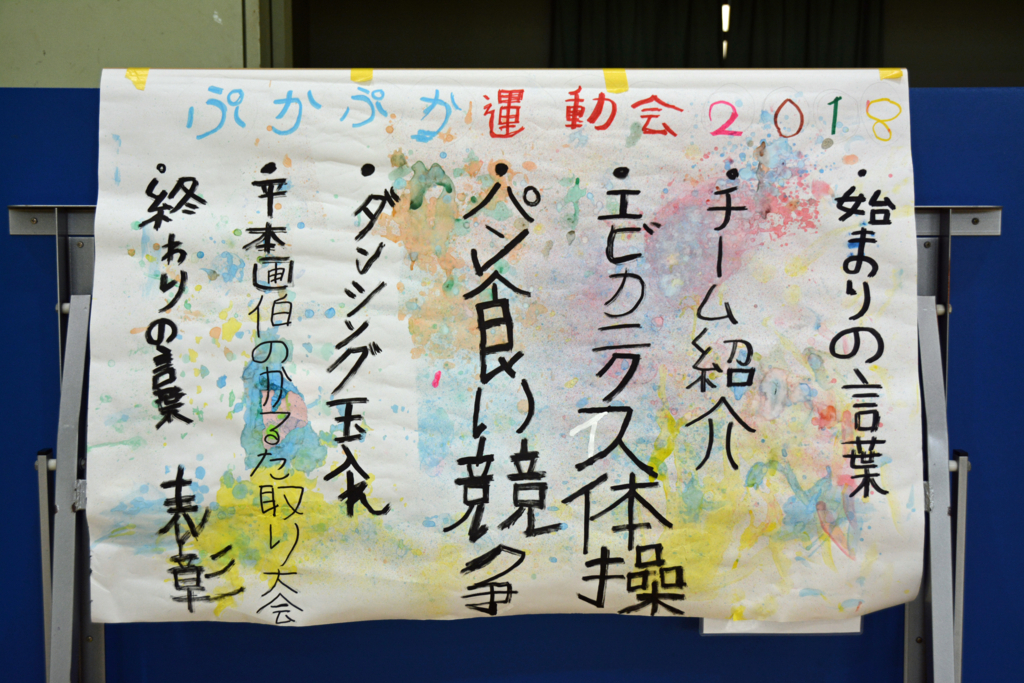 ぷかぷか運動会2018
・始まりの言葉
・チーム紹介
・エビカニクス体操
・パン食い競争
・ダンシング玉入れ
・平本画伯のかるた取り大会
・終わりの言葉 表彰